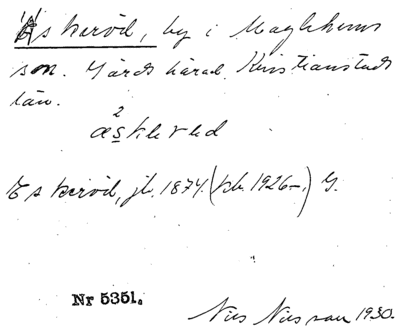 Äskeröd, by i Maglehems
sn. Gärds härad Kristianstads
län.
2
æsklrød
Eskeröd, jb. 1874. (kb. 1926–) G.
Nr 5351.
Nils Nilsson 1930.